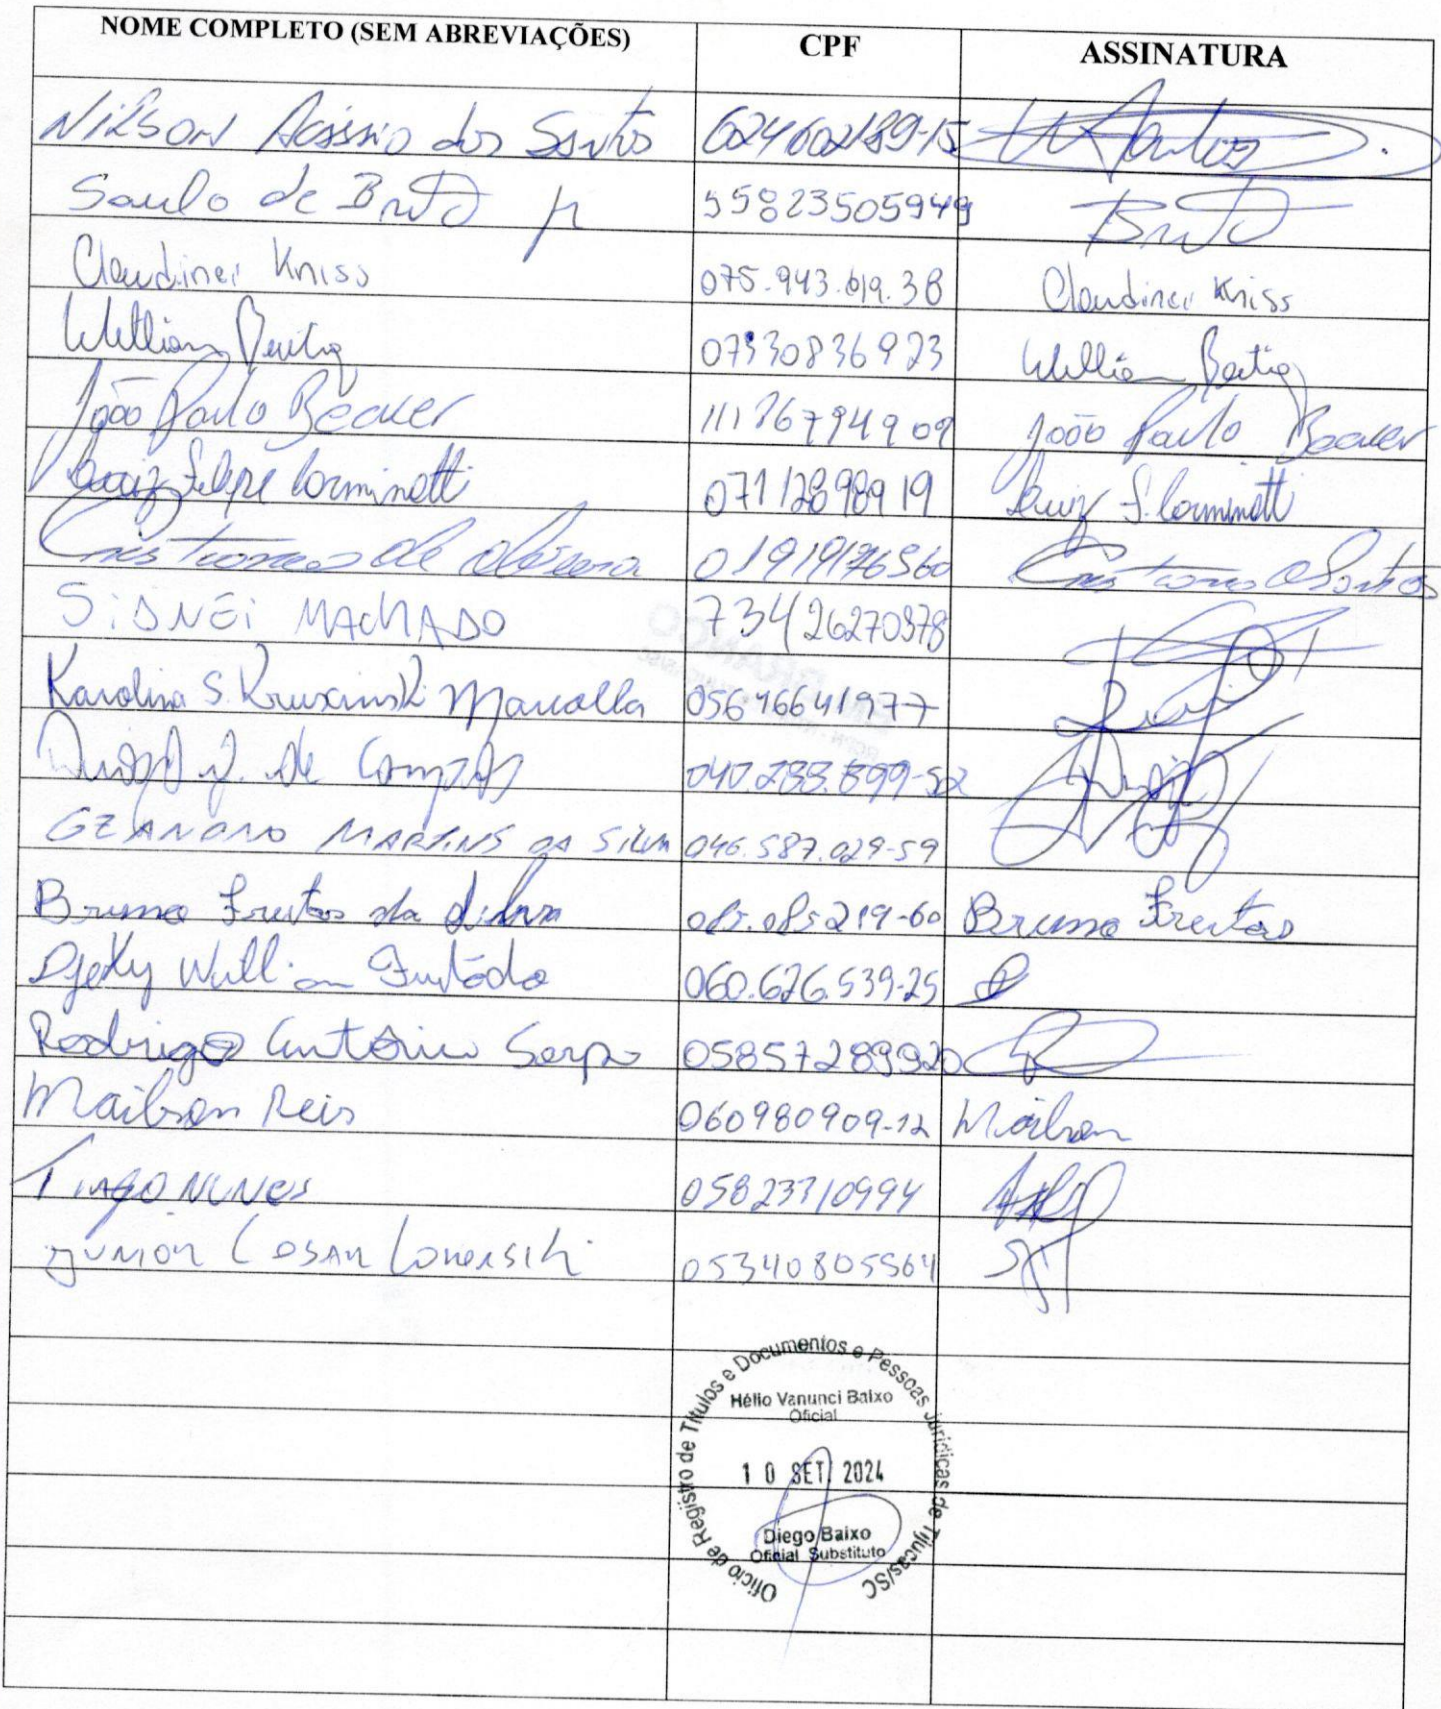 NOME COMPLETO (SEM ABREVIAÇÕES) CPF ASSINATURA
Nilson Acássio dos Santos 624602189-15 Santos
Saulo de Brito Jr 55823505949 Brito
Claudinei Kniss 075.943.619.38 Claudinei Kniss
Willian 07330836923 Willian
João Paulo Becker 11186794909 João Paulo Becker
Luiz Felipe Corminotti 07112898919 Luiz F. Corminotti
de Oliveira 01919176560
SiDNEi MACHADO 73426270978
Karolina S. Kruscinski Marcolla 05646641977
J. de Campos
MARTINS DA SILVA 046.587.029-59
Bruno Freitas da Silva 085.085219-60 Bruno Freitas
Willian Furtado 060.626.539-25
Rodrigo Antônio Serpa 05857289920
Mailson Reis 060980909-12 Mailson
TIAGO NUNES 05823310994
JUNIOR 05340805564
Ofício de Registro de Títulos e Documentos e Pessoas Jurídicas de Tijucas/SC
Hélio Vanunci Baixo
Oficial
10 SET 2024
Diego Baixo
Oficial Substituto